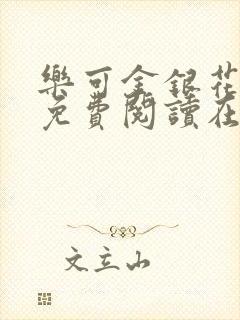 樂可金銀花
免費閱讀在
文立山